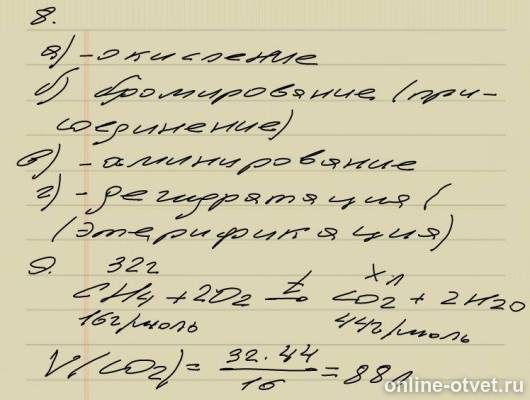 8.
а) - окисление
б) бромирование (при-
соединение)
в) - аминирование
г) - дегидратация (
(этерификация)
9. 32г х л
CH4 + 2O2 t→ CO2 + 2H2O
16г/моль 44г/моль
V(CO2) = 32·44/16 = 88л
online-otvet.ru